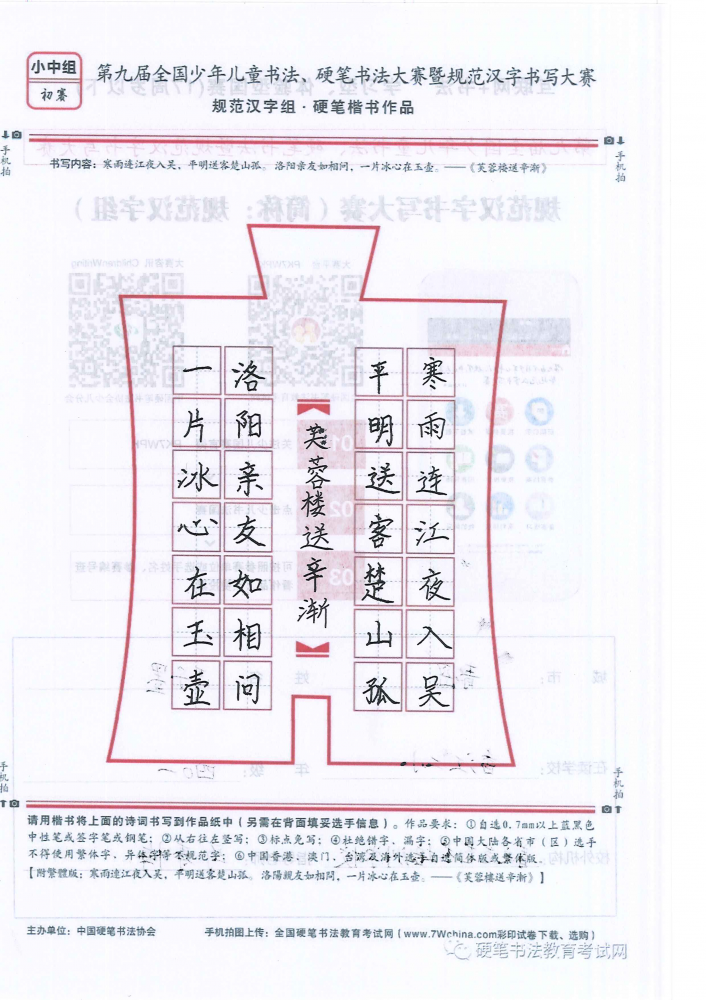 小中组
初赛
第九届全国少年儿童书法、硬笔书法大赛暨规范汉字书写大赛
规范汉字组·硬笔楷书作品
手机拍
手机拍
书写内容：寒雨连江夜入吴，平明送客楚山孤。洛阳亲友如相问，一片冰心在玉壶。——《芙蓉楼送辛渐》
寒雨连江夜入吴
平明送客楚山孤
芙蓉楼送辛渐
洛阳亲友如相问
一片冰心在玉壶
手机拍
手机拍
请用楷书将上面的诗词书写到作品纸中（另需在背面填妥选手信息）。作品要求：①自选0.7mm以上蓝黑色
中性笔或签字笔或钢笔；②从右往左竖写；③标点免写；④杜绝错字、漏字；⑤中国大陆各省市（区）选手
不得使用繁体字，异体字等不规范字；⑥中国香港、澳门、台湾及海外选手自选简体版或繁体版。
【附繁體版：寒雨連江夜入吳，平明送客楚山孤。洛陽親友如相問，一片冰心在玉壺。——《芙蓉樓送辛漸》】
主办单位：中国硬笔书法协会
手机拍图上传：全国硬笔书法教育考试网（www.7Wchina.com彩印试卷下载、选购）
硬笔书法教育考试网